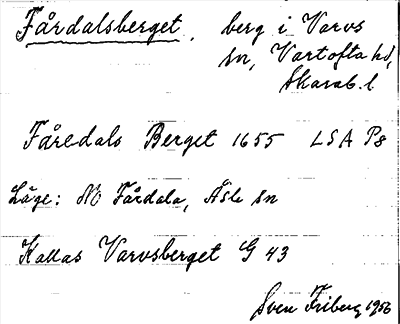 Fårdalsberget, berg i Varvs
sn, Vartofta hd,
Skarab. l
Fåredals Berget 1655 LSA P8
Läge: NO Fårdala, Åsle sn
Kallas Varvsberget G 43
Sven Friberg 1956